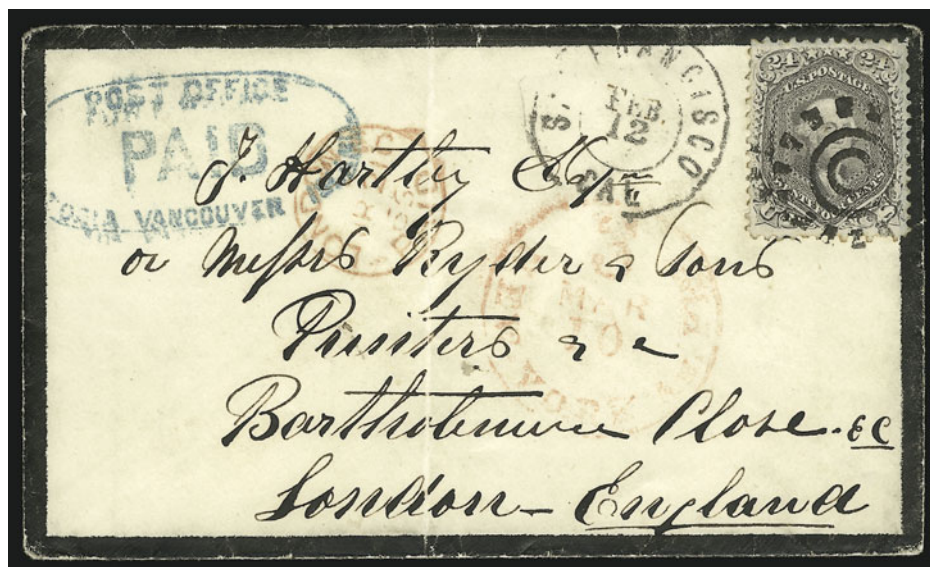 POST OFFICE
PAID
VANCOUVER
SAN FRANCISCO
FEB.
12
CAL
24 24
U.S. POSTAGE
MAR
10
J. Hartley Esqre
or Messrs Ryder & Sons
Printers &c
Bartholomew Close. EC
London - England